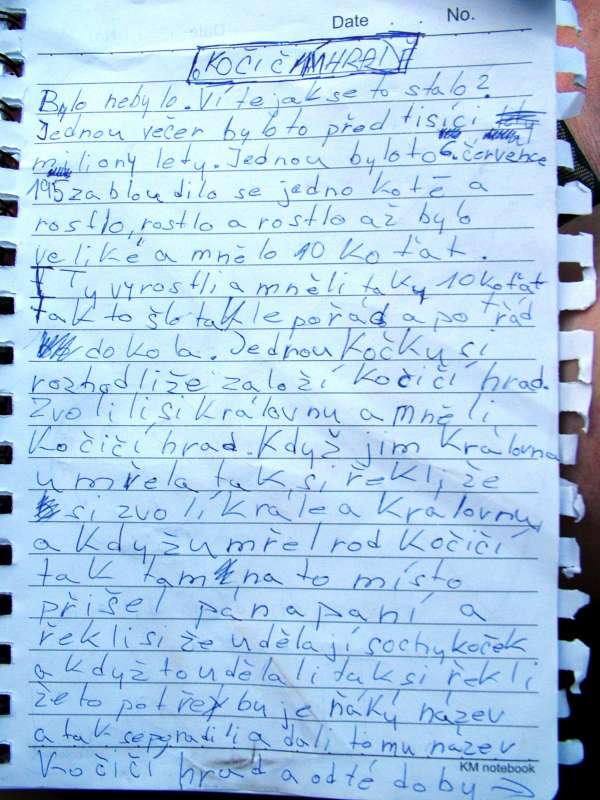 Date . . No.
KOČIČÍ HRAD
Bylo nebylo. Víte jak se to stalo?
Jednou večer bylo to před tisíci
miliony lety. Jednou bylo to 6. července
195 zabloudilo se jedno kotě a
rostlo, rostlo a rostlo až bylo
veliké a mnělo 10 koťat.
Ty vyrostli a mněli taky 10 koťat
tak to šlo takle pořád a pořád
dokola. Jednou kočky si
rozhodli že založí kočičí hrad.
Zvolili si královnu a mněli
kočičí hrad. Když jim královna
umřela tak si řekli že
si zvolí krále a královnu
a když umřel rod kočičí
tak tam na to místo
přišel pán a paní a
řekli si že udělají sochy koček
a když to udělali tak si řekli
že to potřebuje ňáký název
a tak se poradili a dali tomu název
Kočičí hrad a od té doby →
KM notebook